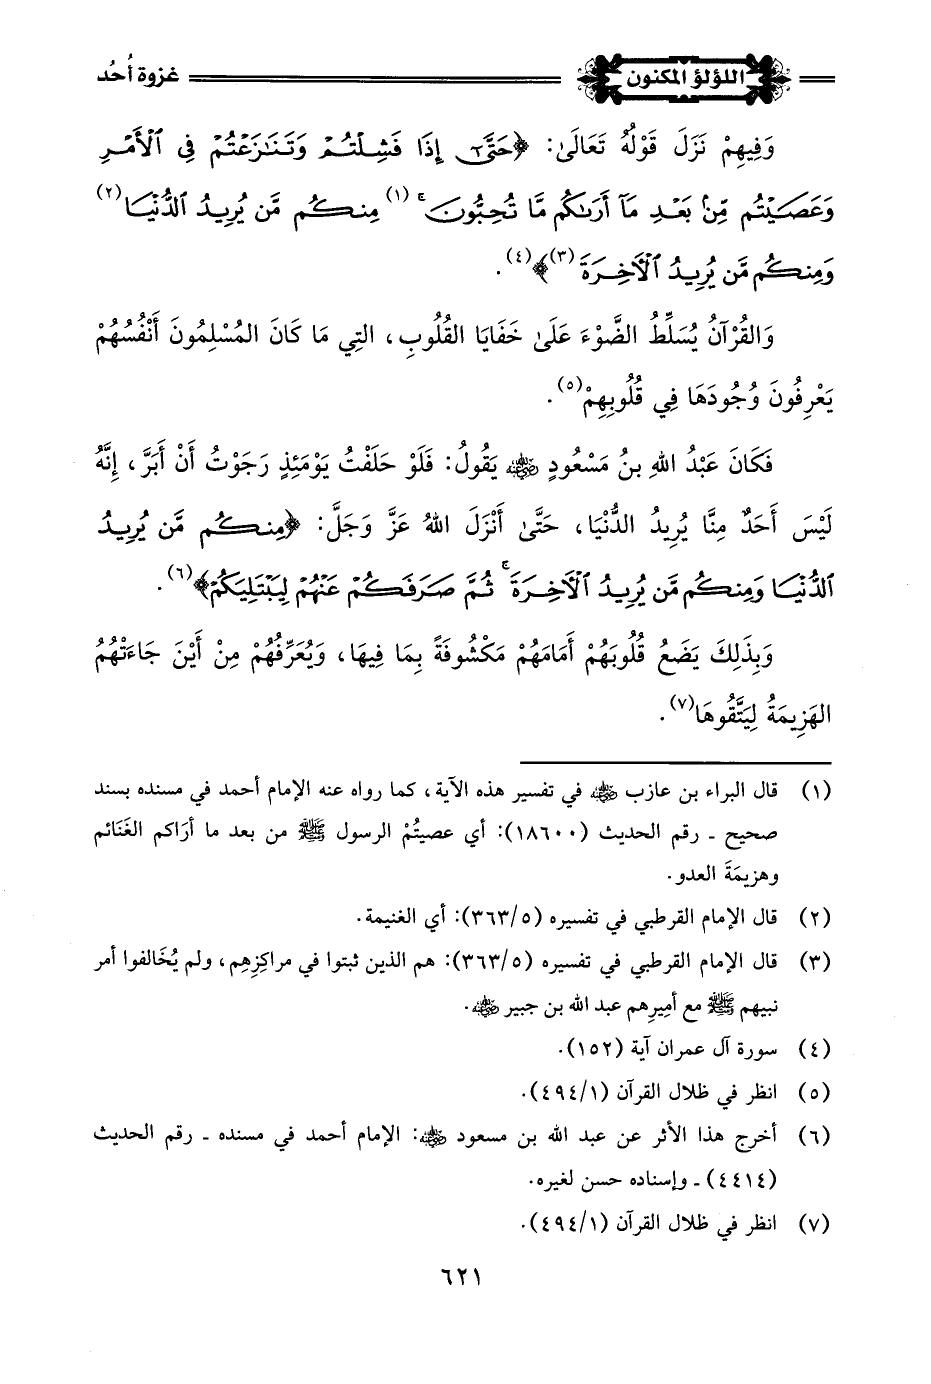 اللؤلؤ المكنون غزوة أُحُد
وَفِيهِمْ نَزَلَ قَوْلُهُ تَعَالَىٰ: ﴿حَتَّىٰٓ إِذَا فَشِلْتُمْ وَتَنَٰزَعْتُمْ فِى ٱلْأَمْرِ
وَعَصَيْتُم مِّنۢ بَعْدِ مَآ أَرَىٰكُم مَّا تُحِبُّونَ ۚ (١) مِنكُم مَّن يُرِيدُ ٱلدُّنْيَا (٢)
وَمِنكُم مَّن يُرِيدُ ٱلْـَٔاخِرَةَ (٣)﴾ (٤).
وَالقُرْآنُ يُسَلِّطُ الضَّوْءَ عَلَىٰ خَفَايَا القُلُوبِ، التِي مَا كَانَ المُسْلِمُونَ أَنْفُسُهُمْ
يَعْرِفُونَ وُجُودَهَا فِي قُلُوبِهِمْ (٥).
فَكَانَ عَبْدُ اللهِ بنُ مَسْعُودٍ رضي الله عنه يَقُولُ: فَلَوْ حَلَفْتُ يَوْمَئِذٍ رَجَوْتُ أَنْ أَبَرَّ، إِنَّهُ
لَيْسَ أَحَدٌ مِنَّا يُرِيدُ الدُّنْيَا، حَتَّىٰ أَنْزَلَ اللهُ عَزَّ وَجَلَّ: ﴿مِنكُم مَّن يُرِيدُ
ٱلدُّنْيَا وَمِنكُم مَّن يُرِيدُ ٱلْـَٔاخِرَةَ ۚ ثُمَّ صَرَفَكُمْ عَنْهُمْ لِيَبْتَلِيَكُمْ﴾ (٦).
وَبِذَلِكَ يَضَعُ قُلُوبَهُمْ أَمَامَهُمْ مَكْشُوفَةً بِمَا فِيهَا، وَيُعَرِّفُهُمْ مِنْ أَيْنَ جَاءَتْهُمُ
الهَزِيمَةُ لِيَتَّقُوهَا (٧).
(١) قال البراء بن عازب رضي الله عنه في تفسير هذه الآية، كما رواه عنه الإمام أحمد في مسنده بسند
صحيح ـ رقم الحديث (١٨٦٠٠): أي عصيتُمْ الرسول ﷺ من بعد ما أرَاكم الغَنَائم
وهزيمَةَ العدو.
(٢) قال الإمام القرطبي في تفسيره (٣٦٣/٥): أي الغنيمة.
(٣) قال الإمام القرطبي في تفسيره (٣٦٣/٥): هم الذين ثبتوا في مراكِزِهِم، ولم يُخَالفوا أمر
نبيهم ﷺ مع أميرِهم عبد الله بن جبير رضي الله عنه.
(٤) سورة آل عمران آية (١٥٢).
(٥) انظر في ظلال القرآن (٤٩٤/١).
(٦) أخرج هذا الأثر عن عبد الله بن مسعود رضي الله عنه: الإمام أحمد في مسنده ـ رقم الحديث
(٤٤١٤) ـ وإسناده حسن لغيره.
(٧) انظر في ظلال القرآن (٤٩٤/١).
٦٢١